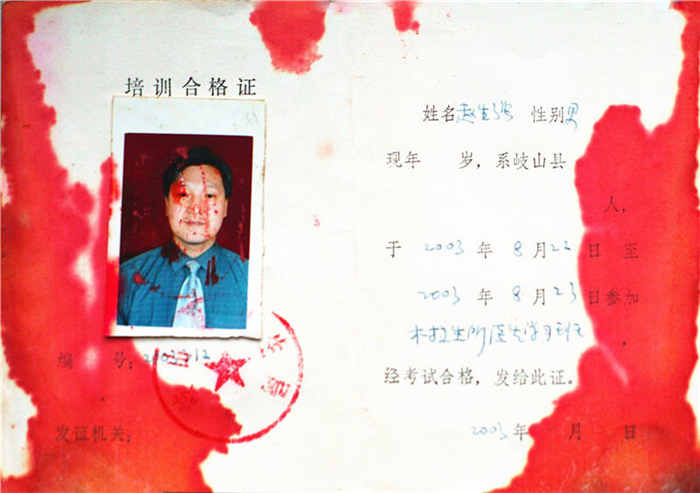 培训合格证
编 号:
发证机关:
姓名 赵生 性别 男
现年 岁,系岐山县
人,
于 2003 年 8 月 22 日 至
2003 年 8 月 23 日参加
村卫生所医生学习班
,
经考试合格,发给此证。
2003 年 月 日